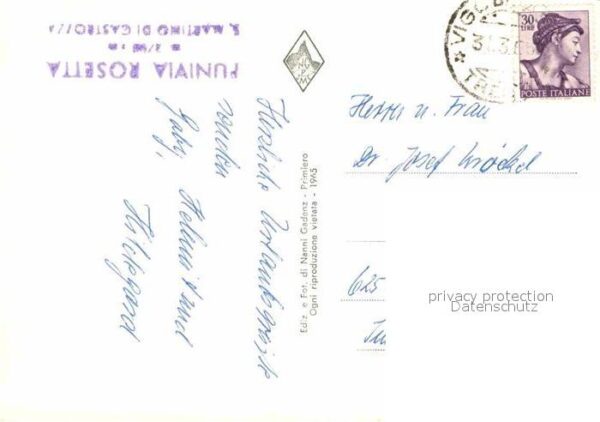 FUNIVIA ROSETTA
S. MARTINO DI CASTROZZA
Herzliche Urlaubsgrüße
senden
Gaby, Helmut und
Hildegard
Ediz. e Fot. di Nanni Gadenz - Primiero
Ogni riproduzione vietata - 1965
30
LIRE
POSTE ITALIANE
Herrn u. Frau
Dr. Josef
625
privacy protection
Datenschutz